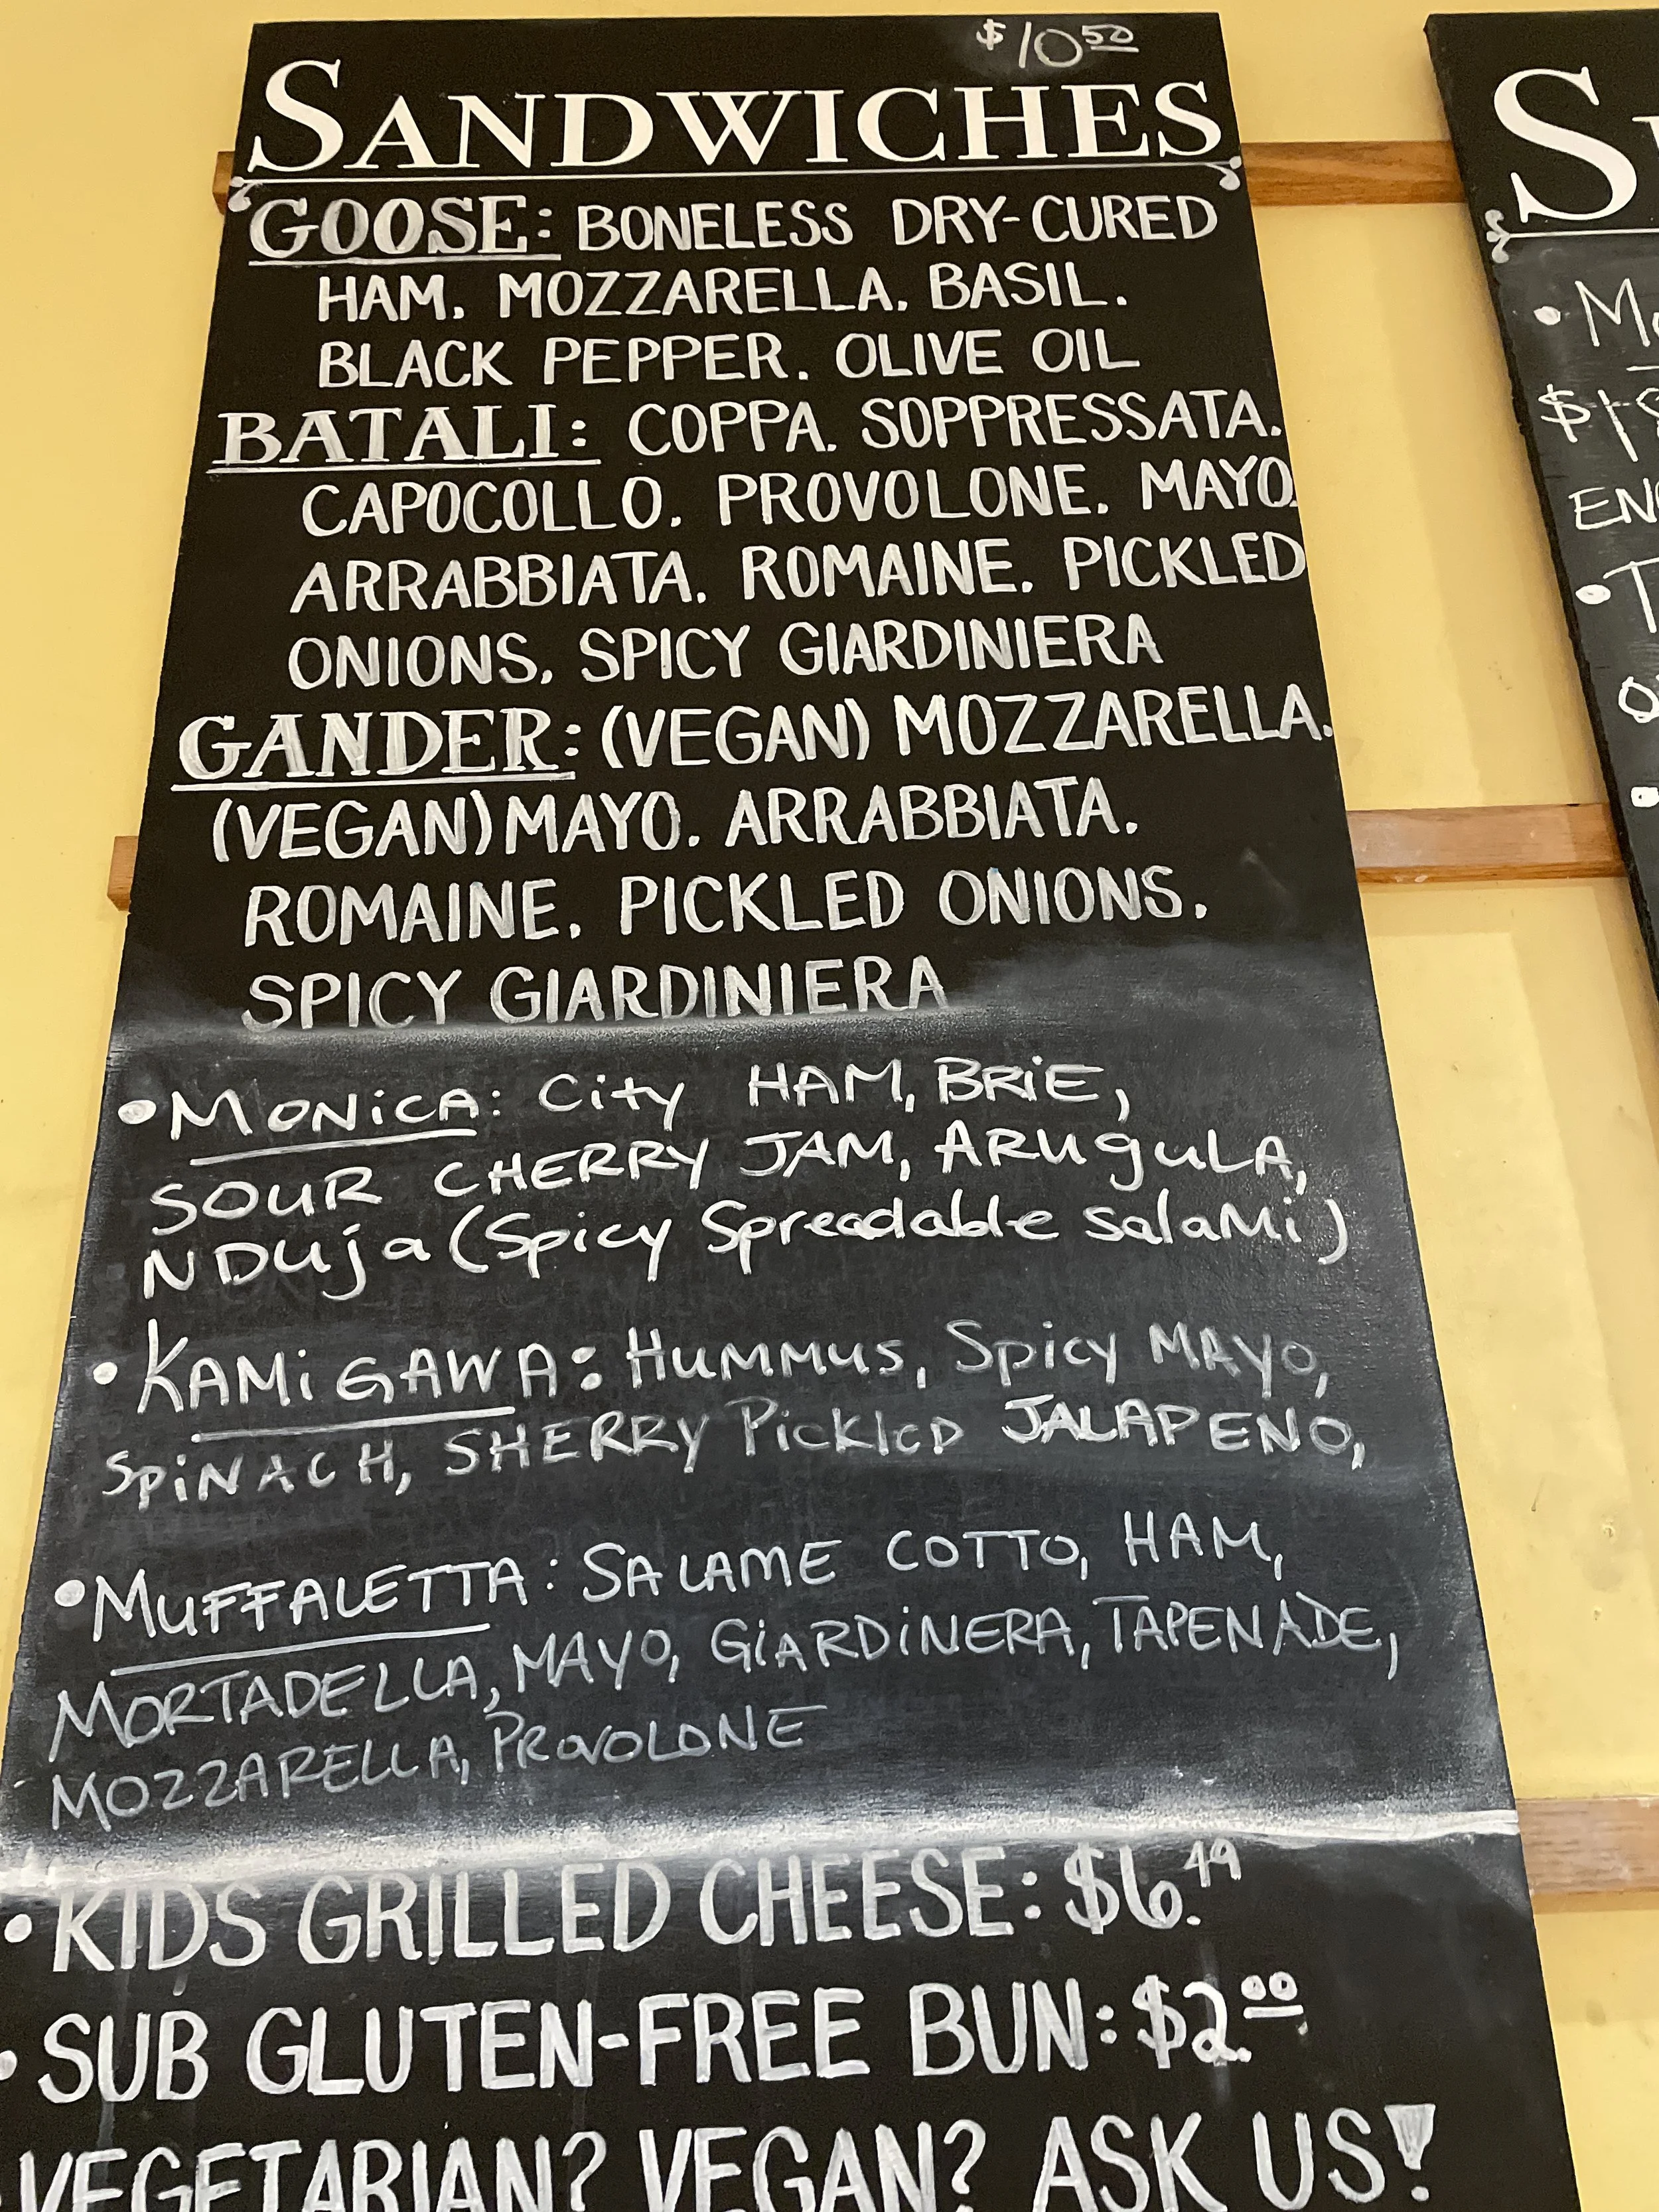 $10.50
SANDWICHES
GOOSE: BONELESS DRY-CURED
HAM. MOZZARELLA. BASIL.
BLACK PEPPER. OLIVE OIL
BATALI: COPPA. SOPPRESSATA.
CAPOCOLLO. PROVOLONE. MAYO.
ARRABBIATA. ROMAINE. PICKLED
ONIONS. SPICY GIARDINIERA
GANDER: (VEGAN) MOZZARELLA.
(VEGAN) MAYO. ARRABBIATA.
ROMAINE. PICKLED ONIONS.
SPICY GIARDINIERA
•MONiCA: City HAM, BRiE,
SOUR CHERRY JAM, ARugulA,
NDuja (Spicy Spreadable salaMi)
•KAMiGAWA: HuMMus, Spicy MAYO,
SpiNACH, SHERRY PickleD JALAPENO,
•MuFFALETTA: SALAME COTTO, HAM,
MORTADELLA, MAYO, GiARDiNERA, TAPENADE,
MOZZARELLA, PROVOLONE
•KIDS GRILLED CHEESE: $6.49
•SUB GLUTEN-FREE BUN: $2.00
VEGETARIAN? VEGAN? ASK US!